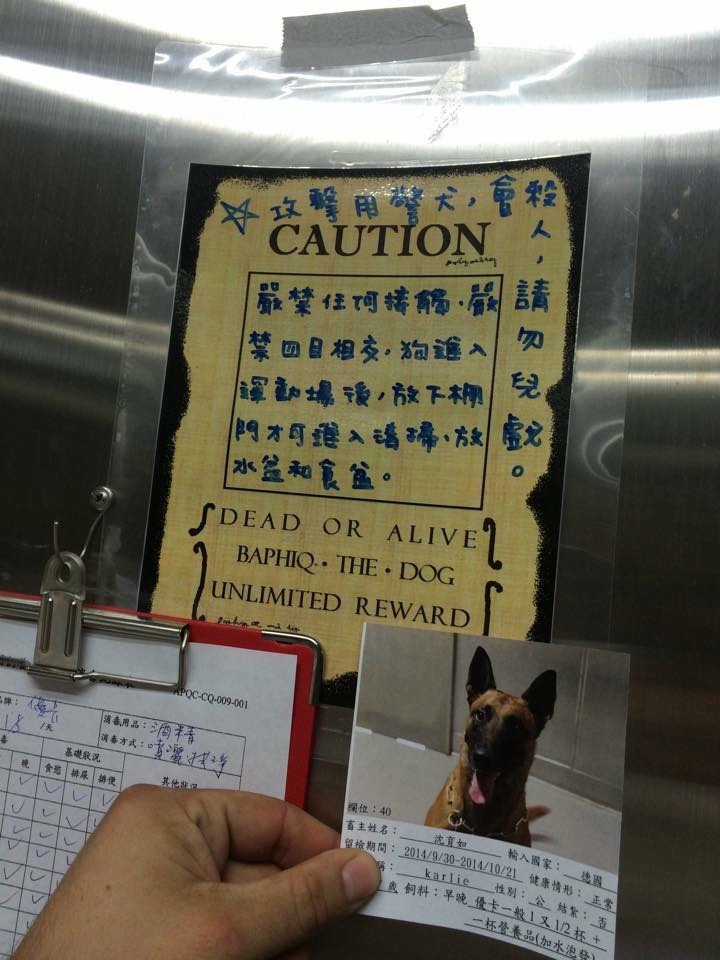 ☆攻擊用警犬,會殺
人,請勿兒戲。
CAUTION
嚴禁任何接觸、嚴
禁四目相交,狗進入
運動場後,放下柵
門才可進入清掃、放
水盆和食盆。
DEAD OR ALIVE
BAPHIQ • THE • DOG
UNLIMITED REWARD
APQC-CQ-009-001
消毒用品:酒精
消毒方式:噴灑
天
基礎狀況
其他狀況
晚 食慾 排尿 排便
欄位:40
畜主姓名: 沈育如 輸入國家: 德國
留檢期間: 2014/9/30-2014/10/21 健康情形: 正常
稱: karlie 性別: 公 結紮: 否
歲 飼料:早晚 優卡一般1又1/2杯+
二杯營養品(加水泡發)